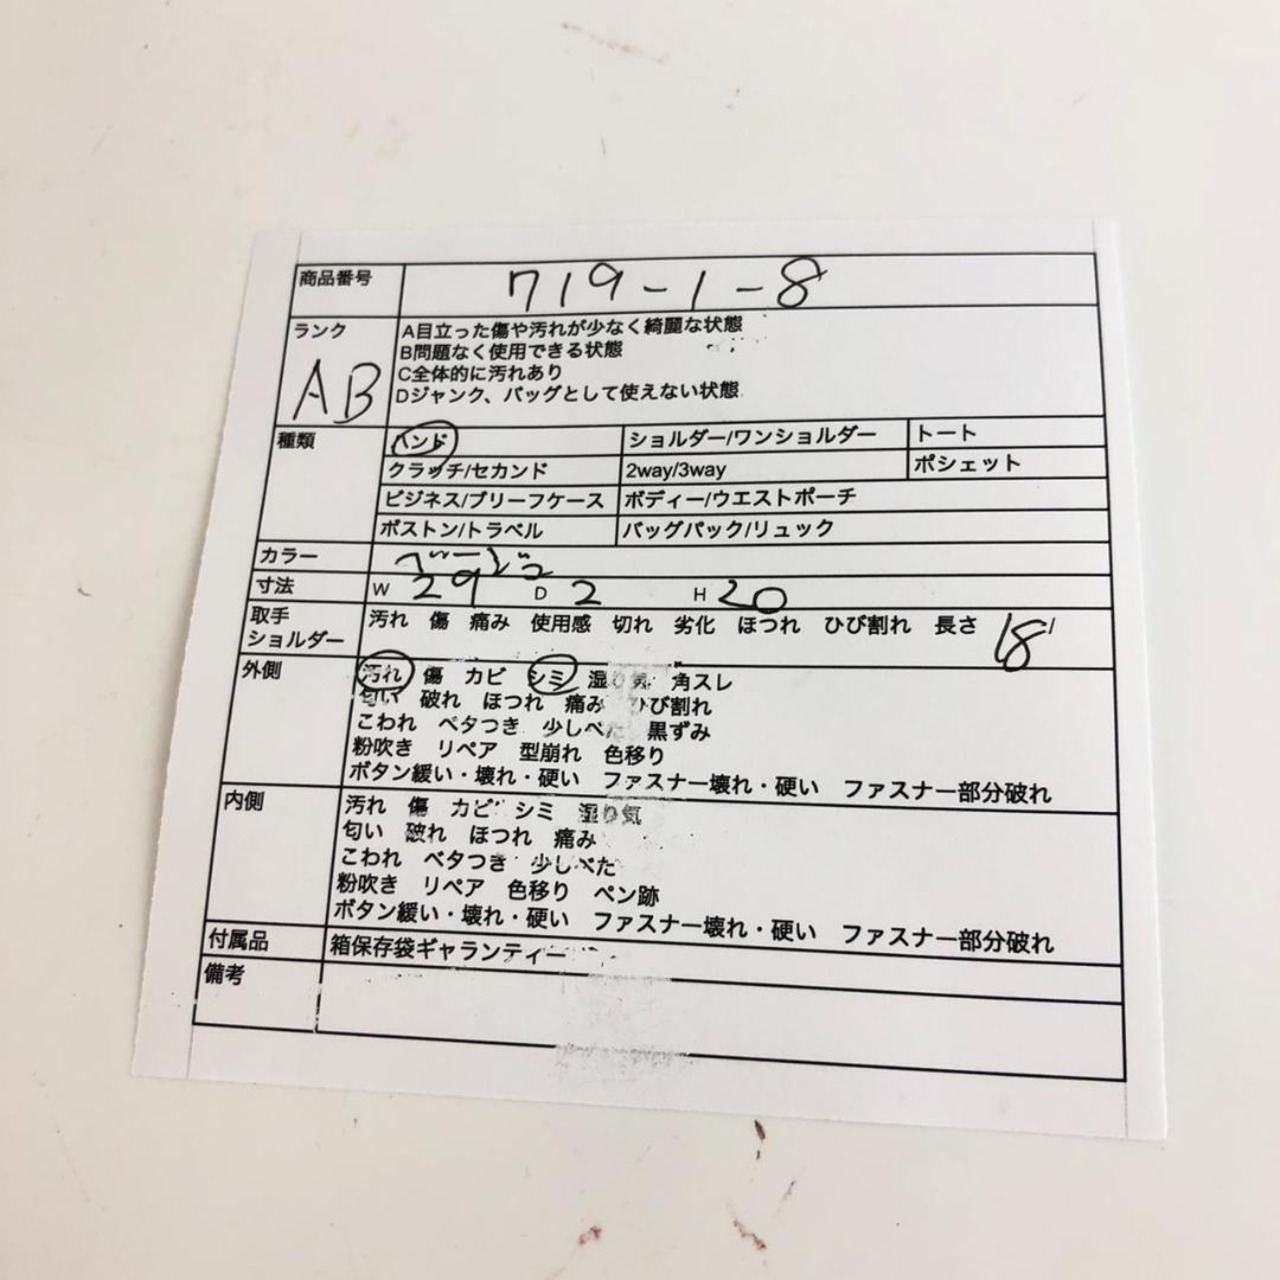 商品番号 719-1-8
ランク AB
A目立った傷や汚れが少なく綺麗な状態
B問題なく使用できる状態
C全体的に汚れあり
Dジャンク、バッグとして使えない状態
種類 ハンド ショルダー/ワンショルダー トート
クラッチ/セカンド 2way/3way ポシェット
ビジネス/ブリーフケース ボディー/ウエストポーチ
ボストン/トラベル バックパック/リュック
カラー ベージュ
寸法 W 29 D 2 H 20
取手 汚れ 傷 痛み 使用感 切れ 劣化 ほつれ ひび割れ 長さ 18
ショルダー
外側 汚れ 傷 カビ シミ 湿り気 角スレ
匂い 破れ ほつれ 痛み ひび割れ
こわれ ベタつき 少しべた 黒ずみ
粉吹き リペア 型崩れ 色移り
ボタン緩い・壊れ・硬い ファスナー壊れ・硬い ファスナー部分破れ
内側 汚れ 傷 カビ シミ 湿り気
匂い 破れ ほつれ 痛み
こわれ ベタつき 少しべた
粉吹き リペア 色移り ペン跡
ボタン緩い・壊れ・硬い ファスナー壊れ・硬い ファスナー部分破れ
付属品 箱保存袋ギャランティー
備考